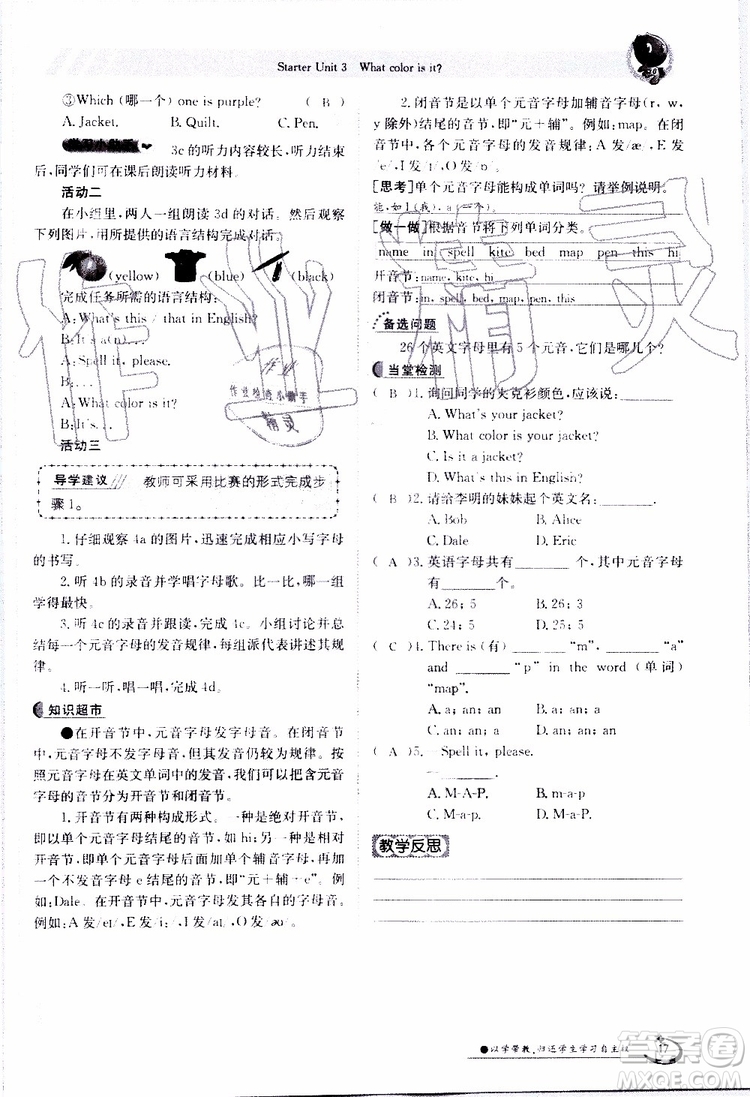 Starter Unit 3 What color is it?
③Which（哪一个）one is purple? （ B ）
A. Jacket. B. Quilt. C. Pen.
3c的听力内容较长,听力训练时
同学们可在课后朗读听力材料。
活动二
在小组里，两人一组朗读3d的对话。然后观察
下列图片，用所提供的语言结构完成对话。
(yellow) (blue) (black)
完成任务所需的语言结构：
A: What's this / that in English?
B: It's a...
A: Spell it, please.
B: ...
A: What color is it?
B: It's...
活动三
导学建议 教师可采用比赛的形式完成步
骤1。
1. 仔细观察4a的图片，迅速写出相应小写字母
的书写。
2. 听4b的录音并学唱字母歌。比一比，哪一组
学得最快。
3. 听4c的录音并跟读，完成4c。小组讨论并总
结每一个元音字母的发音规律，每组派代表讲述其规
律。
4. 听一听，唱一唱，完成4d。
知识超市
●在开音节中，元音字母发字母音。在闭音节
中，元音字母不发字母音，但其发音仍较为规律。按
照元音字母在英文单词中的发音，我们可以把含元音
字母的音节分为开音节和闭音节。
1. 开音节有两种构成形式。一种是绝对开音节，
即以单个元音字母结尾的音节，如hi；另一种是相对
开音节，即单个元音字母后面加单个辅音字母，再加
一个不发音的e构成的音节，即“元＋辅＋e”。例
如：Dale。在开音节中，元音字母发其各自的字母音。
例如：A发/eɪ/、E发/iː/、I发/aɪ/、O发/əʊ/。
2. 闭音节是以单个元音字母加辅音字母(r, w,
y除外)结尾的音节，即“元＋辅”。例如：map。在闭
音节中，各个元音字母的发音规律：A发/æ/、E发
/e/、I发/ɪ/、O发/ɒ/。
[思考]单个元音字母能构成单词吗？请举例说明。
能，如I（我），a（一个）。
[做一做]根据音节将下列单词分类。
name in spell kite bed map pen this hi
开音节：name, kite, hi
闭音节：in, spell, bed, map, pen, this
备选问题
26个英文字母里有5个元音，它们是哪几个？
当堂检测
（ B ）1. 询问同学的夹克衫颜色，应该说：______
A. What's your jacket?
B. What color is your jacket?
C. Is it a jacket?
D. What is this in English?
（ B ）2. 请给李明的妹妹起个英文名：______
A. Bob B. Alice
C. Dale D. Eric
（ A ）3. 英语字母共有______个，其中元音字母
有______个。
A. 26；5 B. 26；6
C. 24；5 D. 25；5
（ C ）4. There is（有）______ “m”, ______ “a”
and ______ “p” in the word（单词）
“map”.
A. a; an; an B. an; an; a
C. an; an; a D. an; a; a
（ A ）5. —Spell it, please.
—______.
A. M-A-P. B. M-a-p.
C. M a p. D. Map.
教学反思
●以学带教，归还学生学习自主权
17
作业精灵
作业检查小帮手
精灵
答案圈
MXQE.COM